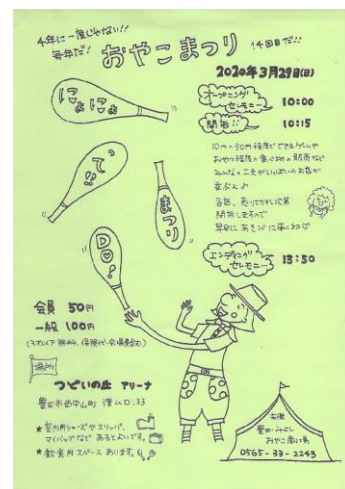 4年に一度じゃない!!
毎年だ!
おやこまつり
14回目だ!!
2020年3月29日(日)
オープニング
セレモニー
10:00
開始!!
10:15
10円〜50円程度でできるゲームや
おやつ程度の食べ物の販売など
みんなの工夫がいっぱいのお店が
並ぶよ♪
各部、売り切れ次第
閉店しますので
早目に あそびに来てね♡
にょにょ
って!!
まつり
DO!
エンディング
セレモニー
13:50
会員 50円
一般 100円
場所
つどいの丘 アリーナ
豊田市西中山町
★室内用シューズやスリッパ、
マイバッグなど あるとよいです。
★飲食用スペース あります。
主催
豊田・みよし
おやこ劇場
0565-33-2243